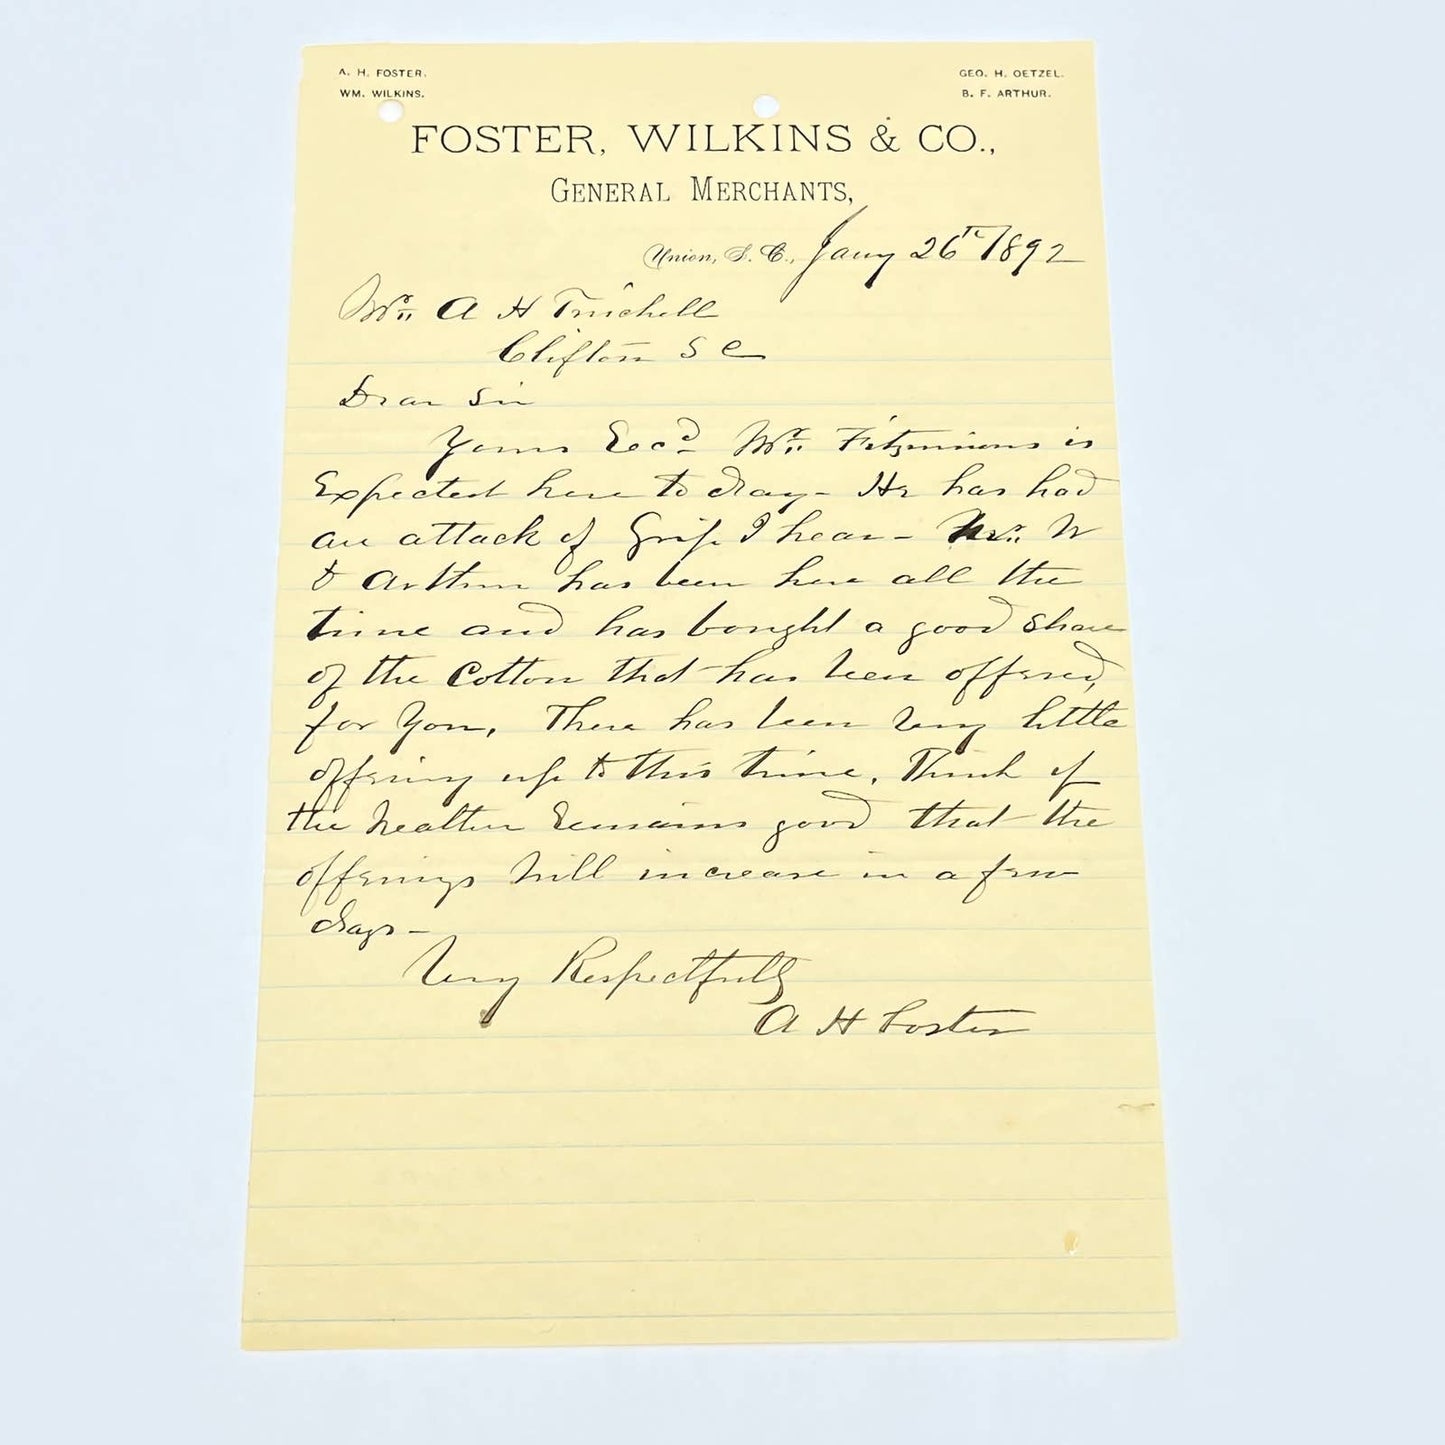 A. H. FOSTER.
WM. WILKINS.
GEO. H. OETZEL.
B. F. ARTHUR.
FOSTER, WILKINS & CO.,
GENERAL MERCHANTS,
Union, S. C., Jany 26th 1892
Mr. A H Twichell
Clifton S C
Dear Sir
Yours Recd. Mr. Fitzsimons is
Expected here to day - He has had
an attack of Grip I hear - Mr. W
D Arthur has been here all the
time and has bought a good share
of the Cotton that has been offered,
for You, There has been very little
offering up to this time. Think if
the weather remains good that the
offerings will increase in a few
days -
Very Respectfully
A H Foster